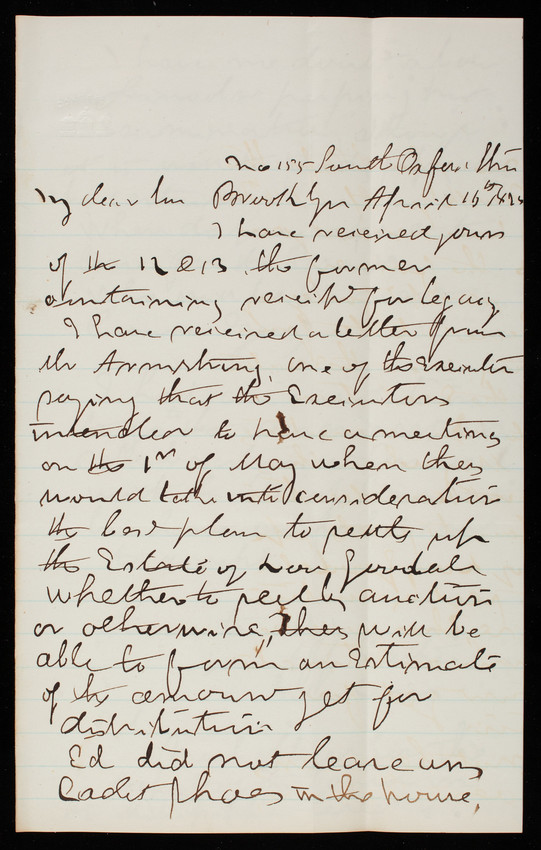 No 155 South Oxford
My dear Brooklyn April 15th
I have received yours
of the 12 & 13 the former
containing receipt for legacy
I have received a letter from
Mr Armstrong, one of the Executors
saying that the Executors
intended to have a meeting
on the 1st of May when they
would take into consideration
the best plan to settle up
the Estate of
whether to sell by auction
or otherwise, they will be
able to form an Estimate
of the amount yet for
distribution
Ed did not leave any
Cadet shoes in the house,